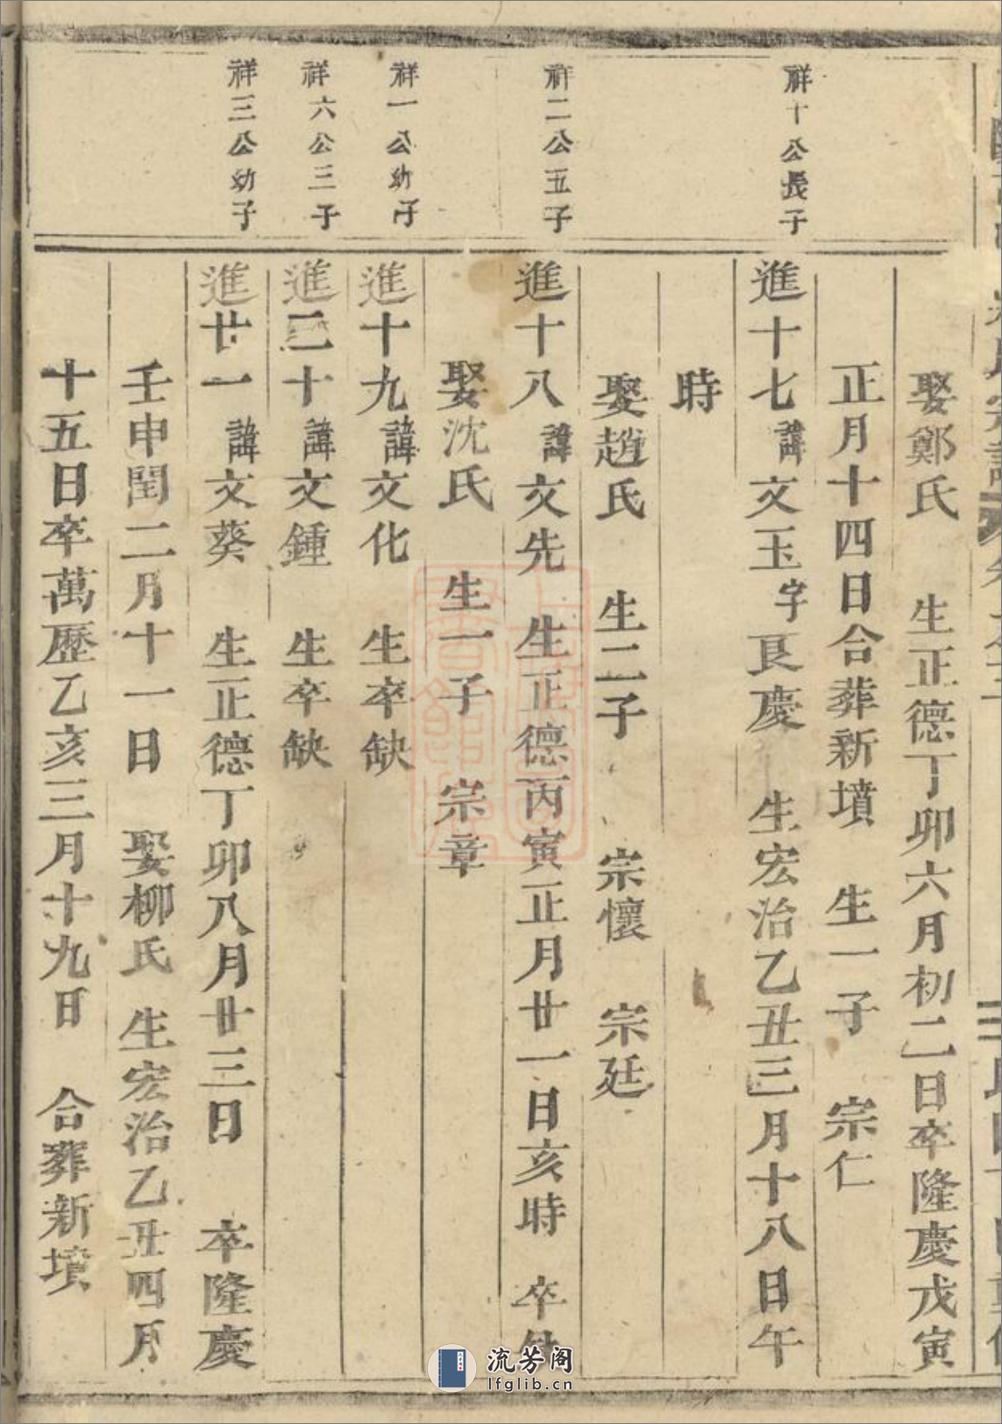 祥十公長子
祥二公五子
祥一公幼子
祥六公三子
祥三公幼子
娶鄭氏 生正德丁卯六月初二日卒隆慶戊寅
正月十四日合葬新墳 生一子 宗仁
進十七諱文玉字艮慶 生宏治乙丑三月十八日午
時
娶趙氏 生二子 宗懷 宗廷
進十八諱文先 生正德丙寅正月廿一日亥時 卒缺
娶沈氏 生一子 宗章
進十九諱文化 生卒缺
進二十諱文鍾 生卒缺
進廿一諱文葵 生正德丁卯八月廿三日 卒隆慶
壬申閏二月十一日 娶柳氏 生宏治乙丑四月
十五日卒萬歷乙亥三月十九日 合葬新墳
流芳阁
lfglib.cn